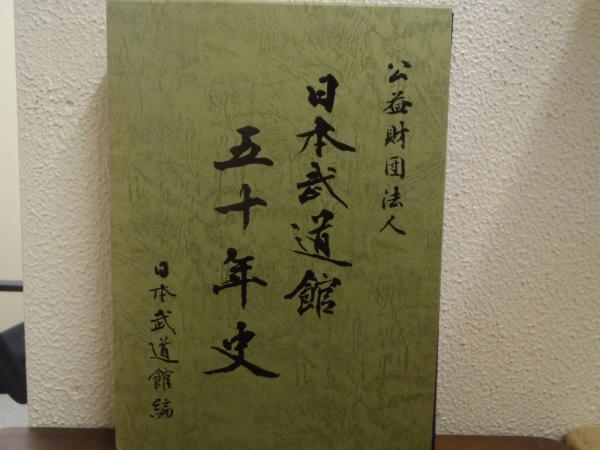 公益財団法人
日本武道館
五十年史
日本武道館編